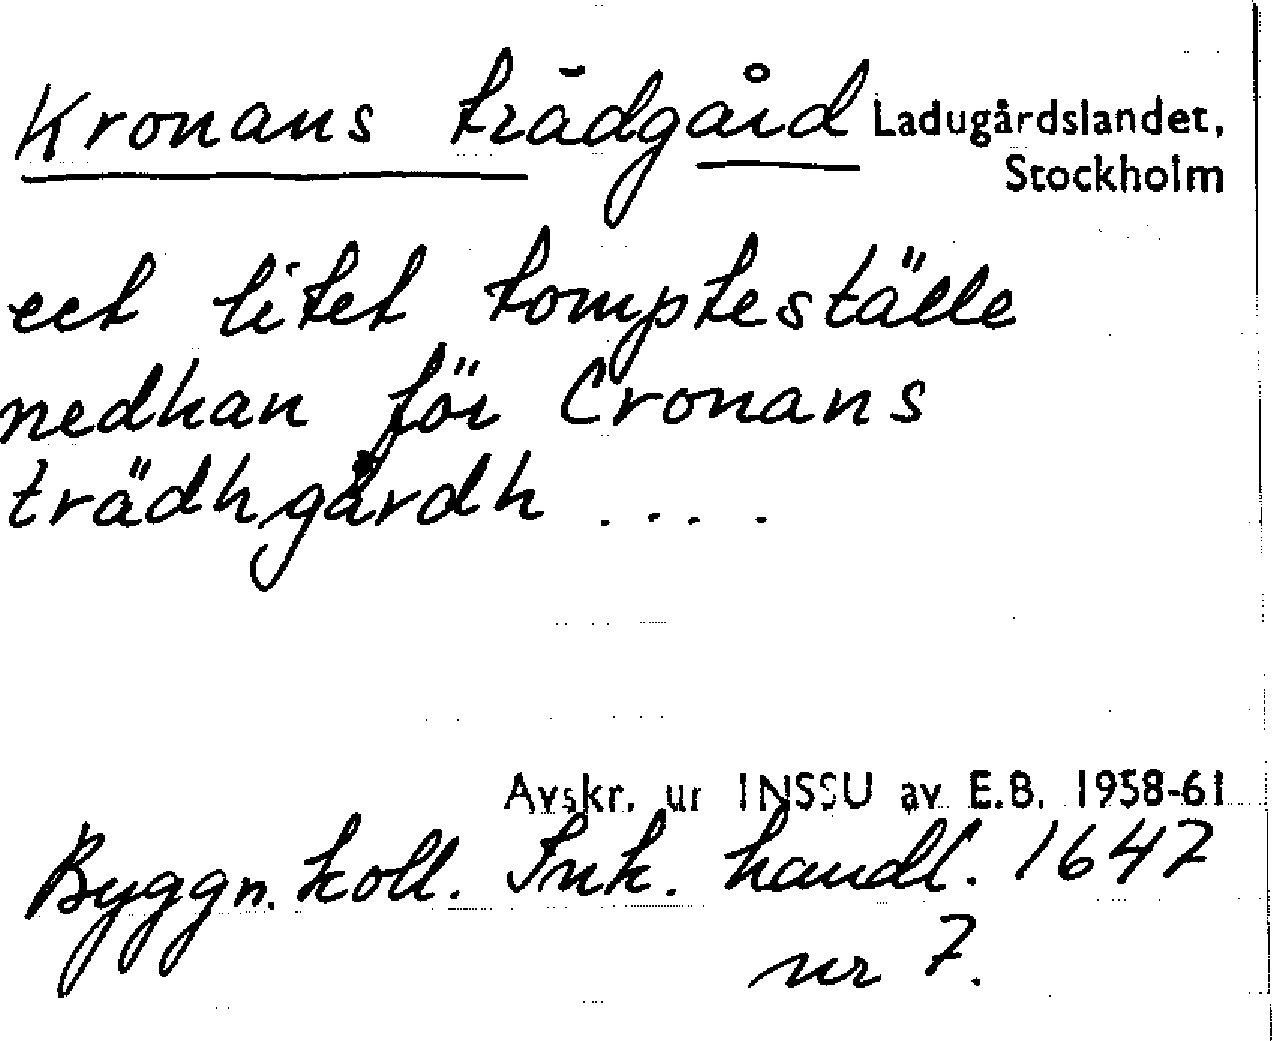 Kronans trädgård Ladugårdslandet,
Stockholm
eet litet tompteställe
nedhan för Cronans
trädhgårdh ....
Avskr. ur INSSU av E.B. 1958-61
Byggn. koll. Ink. handl. 1647
nr 7.